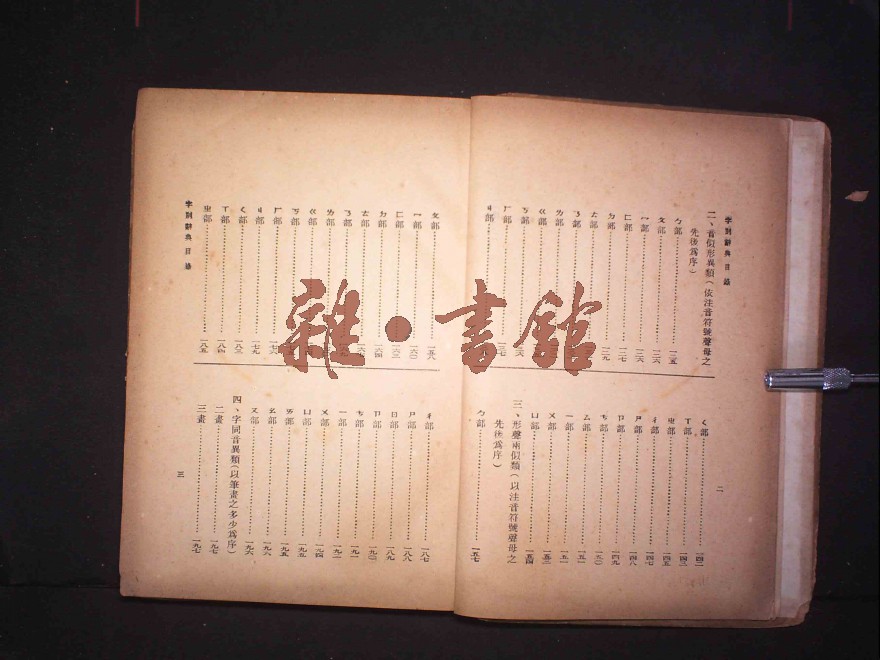 字別辭典目錄
二、音似形異類(依注音符號聲母之
先後為序)
ㄅ部……一二五
ㄆ部……一二六
ㄇ部……一二六
ㄈ部……一二七
ㄉ部……一二九
ㄊ部……
ㄋ部……
ㄌ部……
ㄍ部……
ㄎ部……
ㄏ部……
ㄐ部……
ㄑ部……一四二
ㄒ部……一四三
ㄓ部……一四五
ㄔ部……一四七
ㄕ部……一四八
ㄗ部……一四九
ㄘ部……一五〇
ㄙ部……一五一
一部……一五一
ㄨ部……一五三
ㄩ部……一五四
三、形聲兩似類(以注音符號聲母之
先後為序)
ㄅ部……一五七
二
ㄆ部……一五八
ㄇ部……一六〇
ㄈ部……一六三
ㄉ部……一六四
ㄊ部……
ㄋ部……
ㄌ部……
ㄍ部……
ㄎ部……
ㄏ部……一七六
ㄐ部……一七九
ㄑ部……一八三
ㄒ部……一八四
ㄓ部……一八五
字別辭典目錄
ㄔ部……一八七
ㄕ部……一八八
ㄖ部……一八九
ㄗ部……一九〇
ㄘ部……一九一
一部……一九一
ㄨ部……一九四
ㄩ部……一九五
ㄞ部……一九五
ㄠ部……一九六
ㄡ部……一九六
四、字同音異類(以筆畫之多少為序)
二畫……一九七
三畫……一九七
三
雜·書館